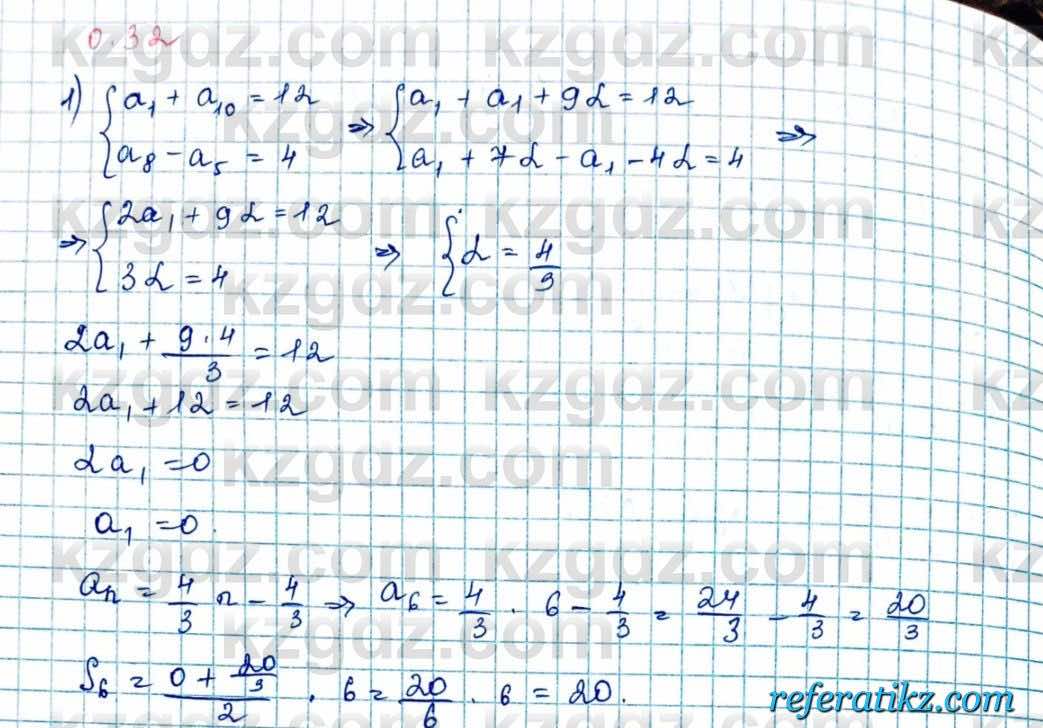 0.32
1) { a₁ + a₁₀ = 12 ⇒ { a₁ + a₁ + 9d = 12 ⇒
{ a₈ − a₅ = 4 { a₁ + 7d − a₁ − 4d = 4
⇒ { 2a₁ + 9d = 12 ⇒ { d = 4/3
{ 3d = 4
2a₁ + 9·4/3 = 12
2a₁ + 12 = 12
2a₁ = 0
a₁ = 0.
aₙ = 4/3 n − 4/3 ⇒ a₆ = 4/3 · 6 − 4/3 = 24/3 − 4/3 = 20/3
S₆ = (0 + 20/3)/2 · 6 = 20/6 · 6 = 20.
kzgdz.com
referatikz.com